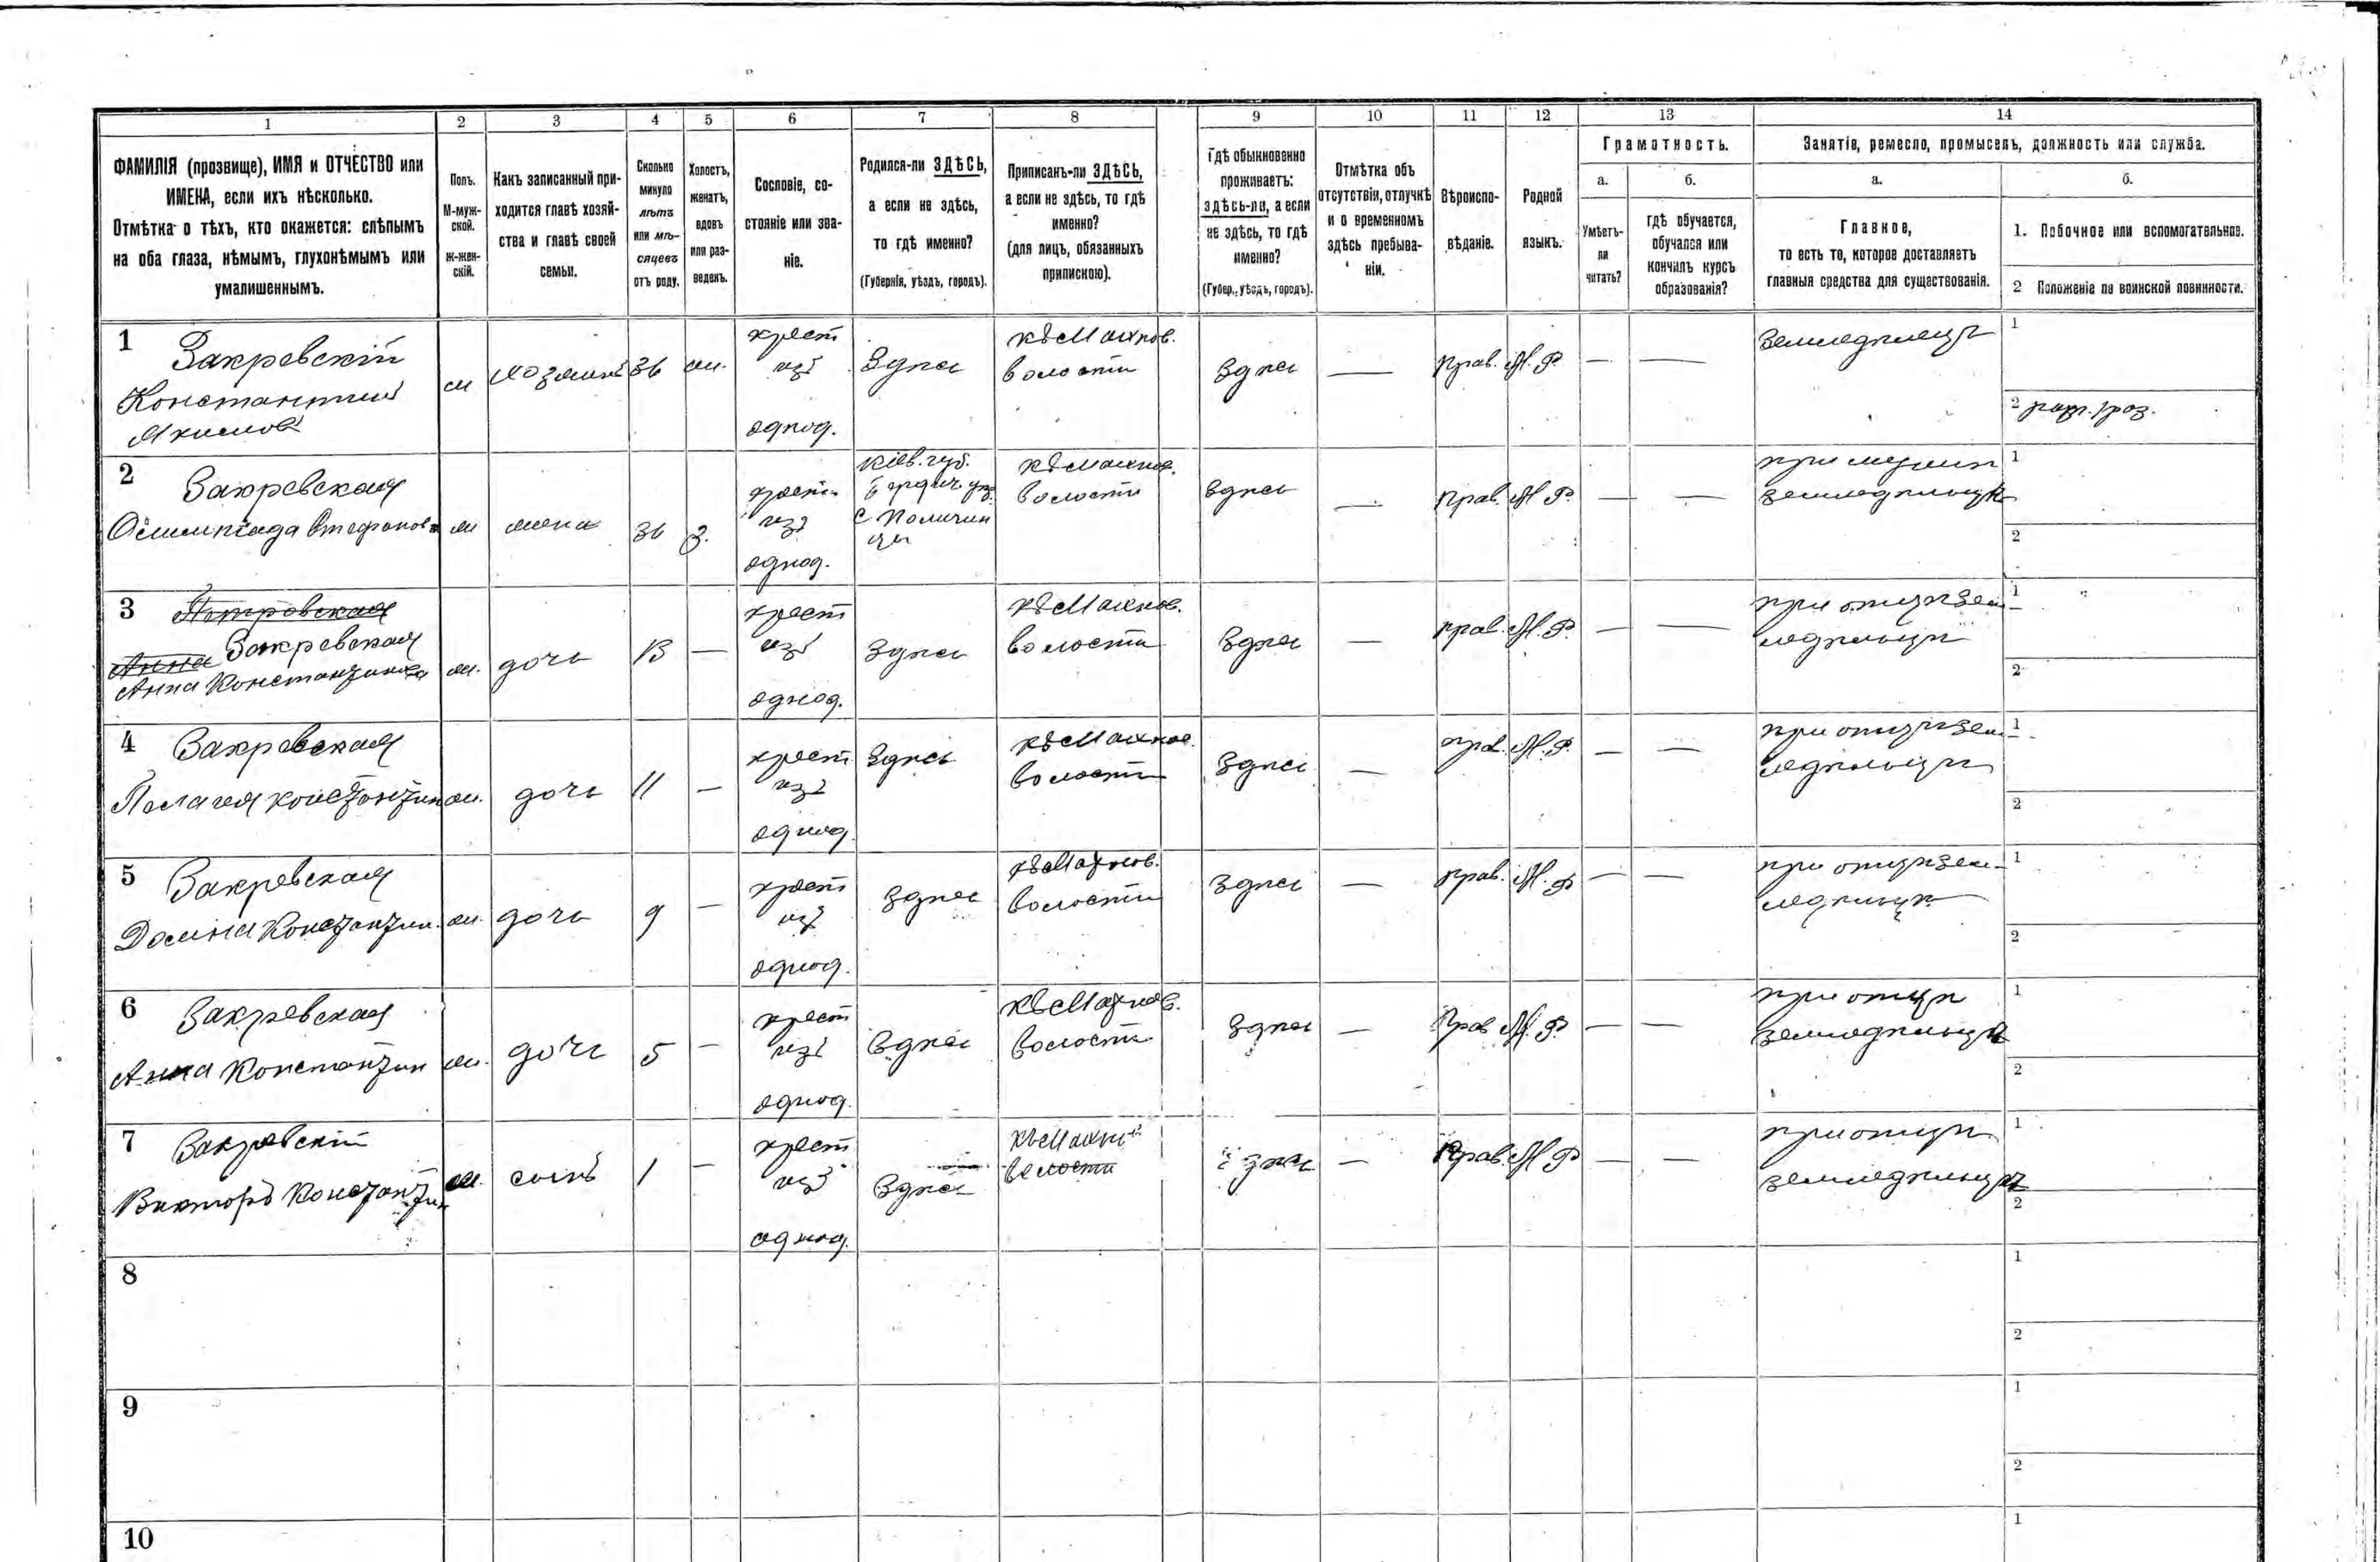 1 2 3 4 5 6 7 8 9 10 11 12 13 14
ФАМИЛІЯ (прозвище), ИМЯ и ОТЧЕСТВО или
ИМЕНА, если ихъ нѣсколько.
Отмѣтка о тѣхъ, кто окажется: слѣпымъ
на оба глаза, нѣмымъ, глухонѣмымъ или
умалишеннымъ.
Полъ.
М-муж-
ской.
ж-жен-
скій.
Какъ записанный при-
ходится главѣ хозяй-
ства и главѣ своей
семьи.
Сколько
минуло
лѣтъ
или мѣ-
сяцевъ
отъ роду.
Холостъ,
женатъ,
вдовъ
или раз-
веденъ.
Сословіе, со-
стояніе или зва-
ніе.
Родился-ли ЗДѢСЬ,
а если не здѣсь,
то гдѣ именно?
(Губернія, уѣздъ, городъ).
Приписанъ-ли ЗДѢСЬ,
а если не здѣсь, то гдѣ
именно?
(для лицъ, обязанныхъ
припискою).
Гдѣ обыкновенно
проживаетъ:
здѣсь-ли, а если
не здѣсь, то гдѣ
именно?
(Губер., уѣздъ, городъ).
Отмѣтка объ
отсутствіи, отлучкѣ
и о временномъ
здѣсь пребыва-
ніи.
Вѣроиспо-
вѣданіе.
Родной
языкъ.
Грамотность.
а.
Умѣетъ-
ли
читать?
б.
гдѣ обучается,
обучался или
кончилъ курсъ
образованія?
Занятіе, ремесло, промыселъ, должность или служба.
а.
Главное,
то есть то, которое доставляетъ
главныя средства для существованія.
б.
1. Побочное или вспомогательное.
2 Положеніе по воинской повинности.
1 Закревскій
Константинъ
м
хозяинъ
36
ж.
крест
изъ
однод.
Здѣсь
къ Махнов.
волости
Здѣсь
—
Прав.
М. Р.
—
—
земледѣлецъ
1
2
2 Закревская
Олимпіада Стефанов
ж
жена
36
з.
крест
изъ
однод.
Кіев. губ.
Бердич. уѣз.
с.
къ Махнов.
волости
здѣсь
—
Прав.
М. Р.
—
—
при мужѣ
земледѣльцѣ
1
2
3 Петровская
Анна Закревская
Анна Константинова
ж.
дочь
13
—
крест
изъ
однод.
здѣсь
къ Махнов.
волости
Здѣсь
—
прав.
М. Р.
—
—
при отцѣ зем-
ледѣльцѣ
1
2
4 Закревская
Пелагея Константин
ж.
дочь
11
—
крест
изъ
однод.
Здѣсь
къ Махнов.
волости
Здѣсь
—
прав.
М. Р.
—
—
при отцѣ зем-
ледѣльцѣ
1
2
5 Закревская
Домна Константин.
ж.
дочь
9
—
крест
изъ
однод.
здѣсь
къ Махнов.
волости
Здѣсь
—
прав.
М. Р.
—
—
при отцѣ зем-
ледѣльцѣ
1
2
6 Закревская
Анна Константин
ж.
дочь
5
—
крест
изъ
однод.
Здѣсь
къ Махнов.
волости
Здѣсь
—
Прав
М. Р.
—
—
при отцѣ
земледѣльцѣ
1
2
7 Закревскій
Викторъ Константин
м.
сынъ
1
—
крест
изъ
однод.
Здѣсь
къ Махнов
волости
здѣсь
—
Прав.
М. Р.
—
—
при отцѣ
земледѣльцѣ
1
2
8
1
2
9
1
2
10
1